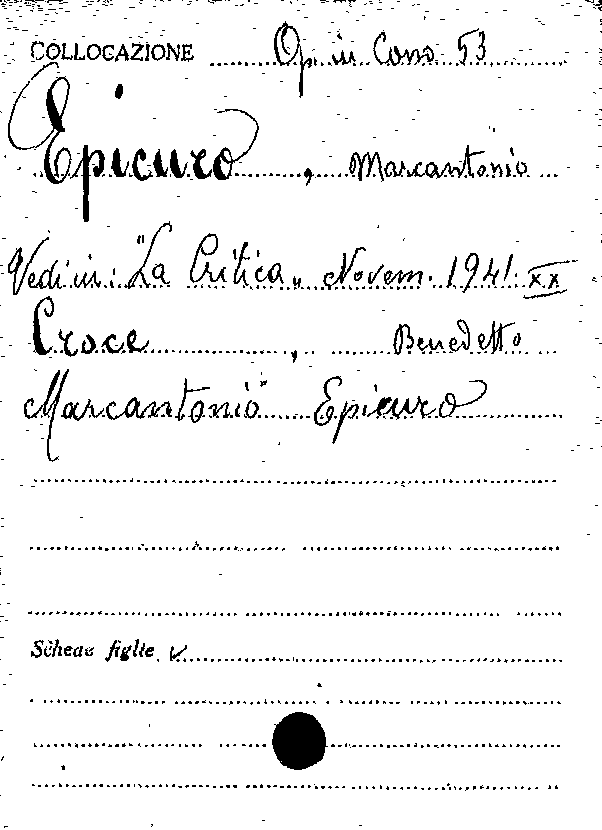 COLLOCAZIONE Op. in Cons 53
Epicuro, Marcantonio
Vedi in: "La Critica„ Novem. 1941. XX
Croce, Benedetto
Marcantonio Epicuro
Schede figlie